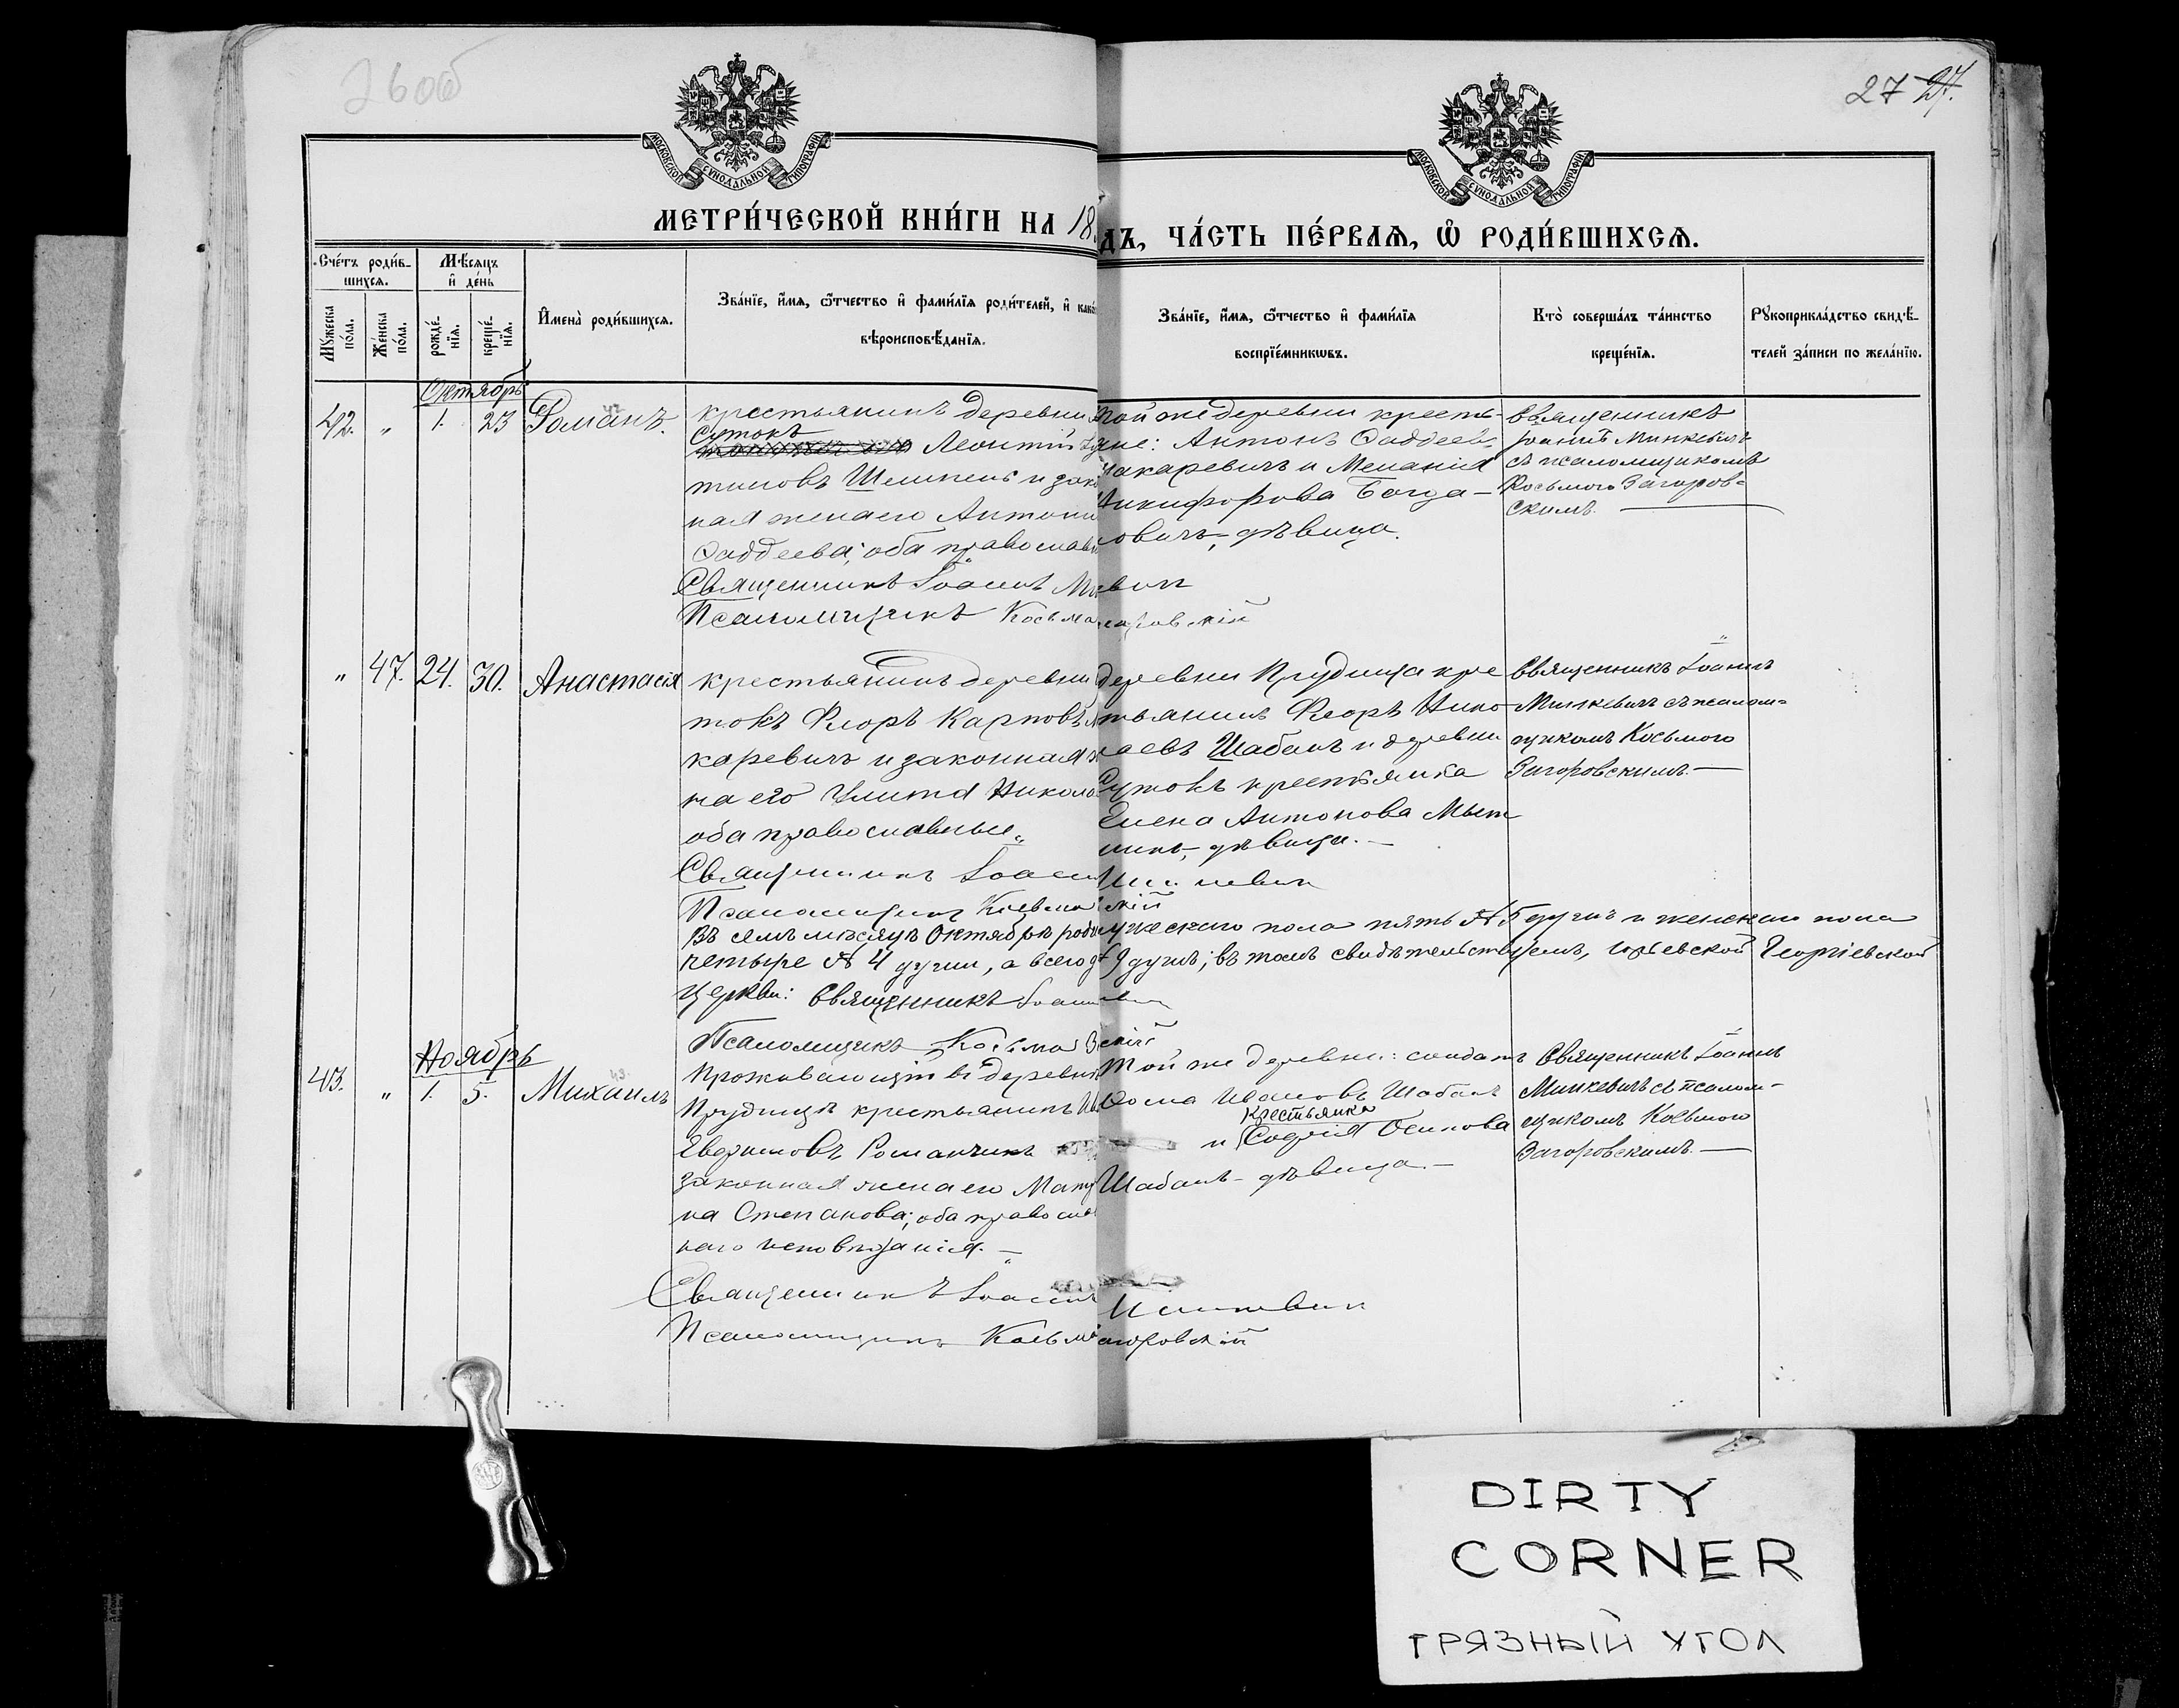 260б
27 27.
МОСКОВСКОЙ СѴНОДАЛЬНОЙ ТИПОГРАФІИ
МОСКОВСКОЙ СѴНОДАЛЬНОЙ ТИПОГРАФІИ
МЕТРИ́ЧЕСКОЙ КНИ́ГИ НА 18
ДЪ, ЧА́СТЬ ПЕ́РВАѦ, Ѽ РОДИ́ВШИХСѦ.
Сче́тъ роди́в-
шихсѧ.
Мѣ́сѧцъ
и҆ де́нь
Мꙋ́жеска
по́ла.
Же́нска
по́ла.
рожде́-
нїѧ.
креще́-
нїѧ.
И҆мена̀ роди́вшихсѧ.
Зва́нїе, и҆́мѧ, ѻ҆́тчество и҆ фами́лїѧ роди́телей, и҆ како
вѣроисповѣ́данїѧ.
Зва́нїе, и҆́мѧ, ѻ҆́тчество и҆ фами́лїѧ
воспрїе́мникѡвъ.
Кто̀ соверша́лъ та́инство
креще́нїѧ.
Рꙋкоприкла́дство свидѣ́-
телей за́писи по жела́нїю.
Октябрь
42. " 1. 23 Романъ.
крестьянинъ деревни
Сутокъ
Леонтій
тиновъ Шешпень и зако
ная жена его Антони
Ѳаддеева; оба православн
Священникъ Іоаннъ Ми
Псаломщикъ Косьма
той же деревни кресть-
яне: Антонъ Ѳаддеев
Макаревичъ и Меланія
Никифорова Богда-
овичъ, дѣвица.
вичъ
аровскій
Священникъ
Іоаннъ Минкевичъ
съ псаломщикомъ
Косьмою Загоров-
скимъ.
" 47. 24. 30. Анастасія
крестьянинъ деревни
токъ Флоръ Карповъ
каревичъ и законная
на его Улита Никола
оба православные.
Священникъ Іоанн
Псаломщикъ Косьма
деревни Прудища кре
тьянинъ Флоръ Нико
лаевъ Шабанъ и деревни
Сутокъ крестьянка
Елена Антонова Мыт
никъ, дѣвица.
скій
Священникъ Іоаннъ
Минкевичъ съ псалом-
щикомъ Косьмою
Загоровскимъ.
Въ семъ мѣсяцѣ Октябрѣ роди ужескаго пола пять № 5 душъ и женскаго пола
четыре № 4 души, а всего 9 душъ; въ томъ свидѣтельствуемъ, Юрьевской Георгіевской
Церкви: Священникъ Іоанн
Псаломщикъ Косьма З скій
Ноябрь
43. " 1. 5. Михаилъ
Проживающій въ деревнѣ
Прудищѣ крестьянинъ
Евфимовъ Романчикъ
законная жена его Матр
на Степанова; оба правосла
наго исповѣданія.
Священникъ Іоаннъ
Псаломщикъ Косьма
Той же деревни: солдатъ
Ѳома Ивановъ Шабанъ
крестьянка
и Софія Осипова
Шабанъ - дѣвица.
Минкевич
агоровскій
Священникъ Іоаннъ
Минкевичъ съ псалом-
щикомъ Косьмою
Загоровскимъ.
DIRTY
CORNER
ГРЯЗНЫЙ УГОЛ